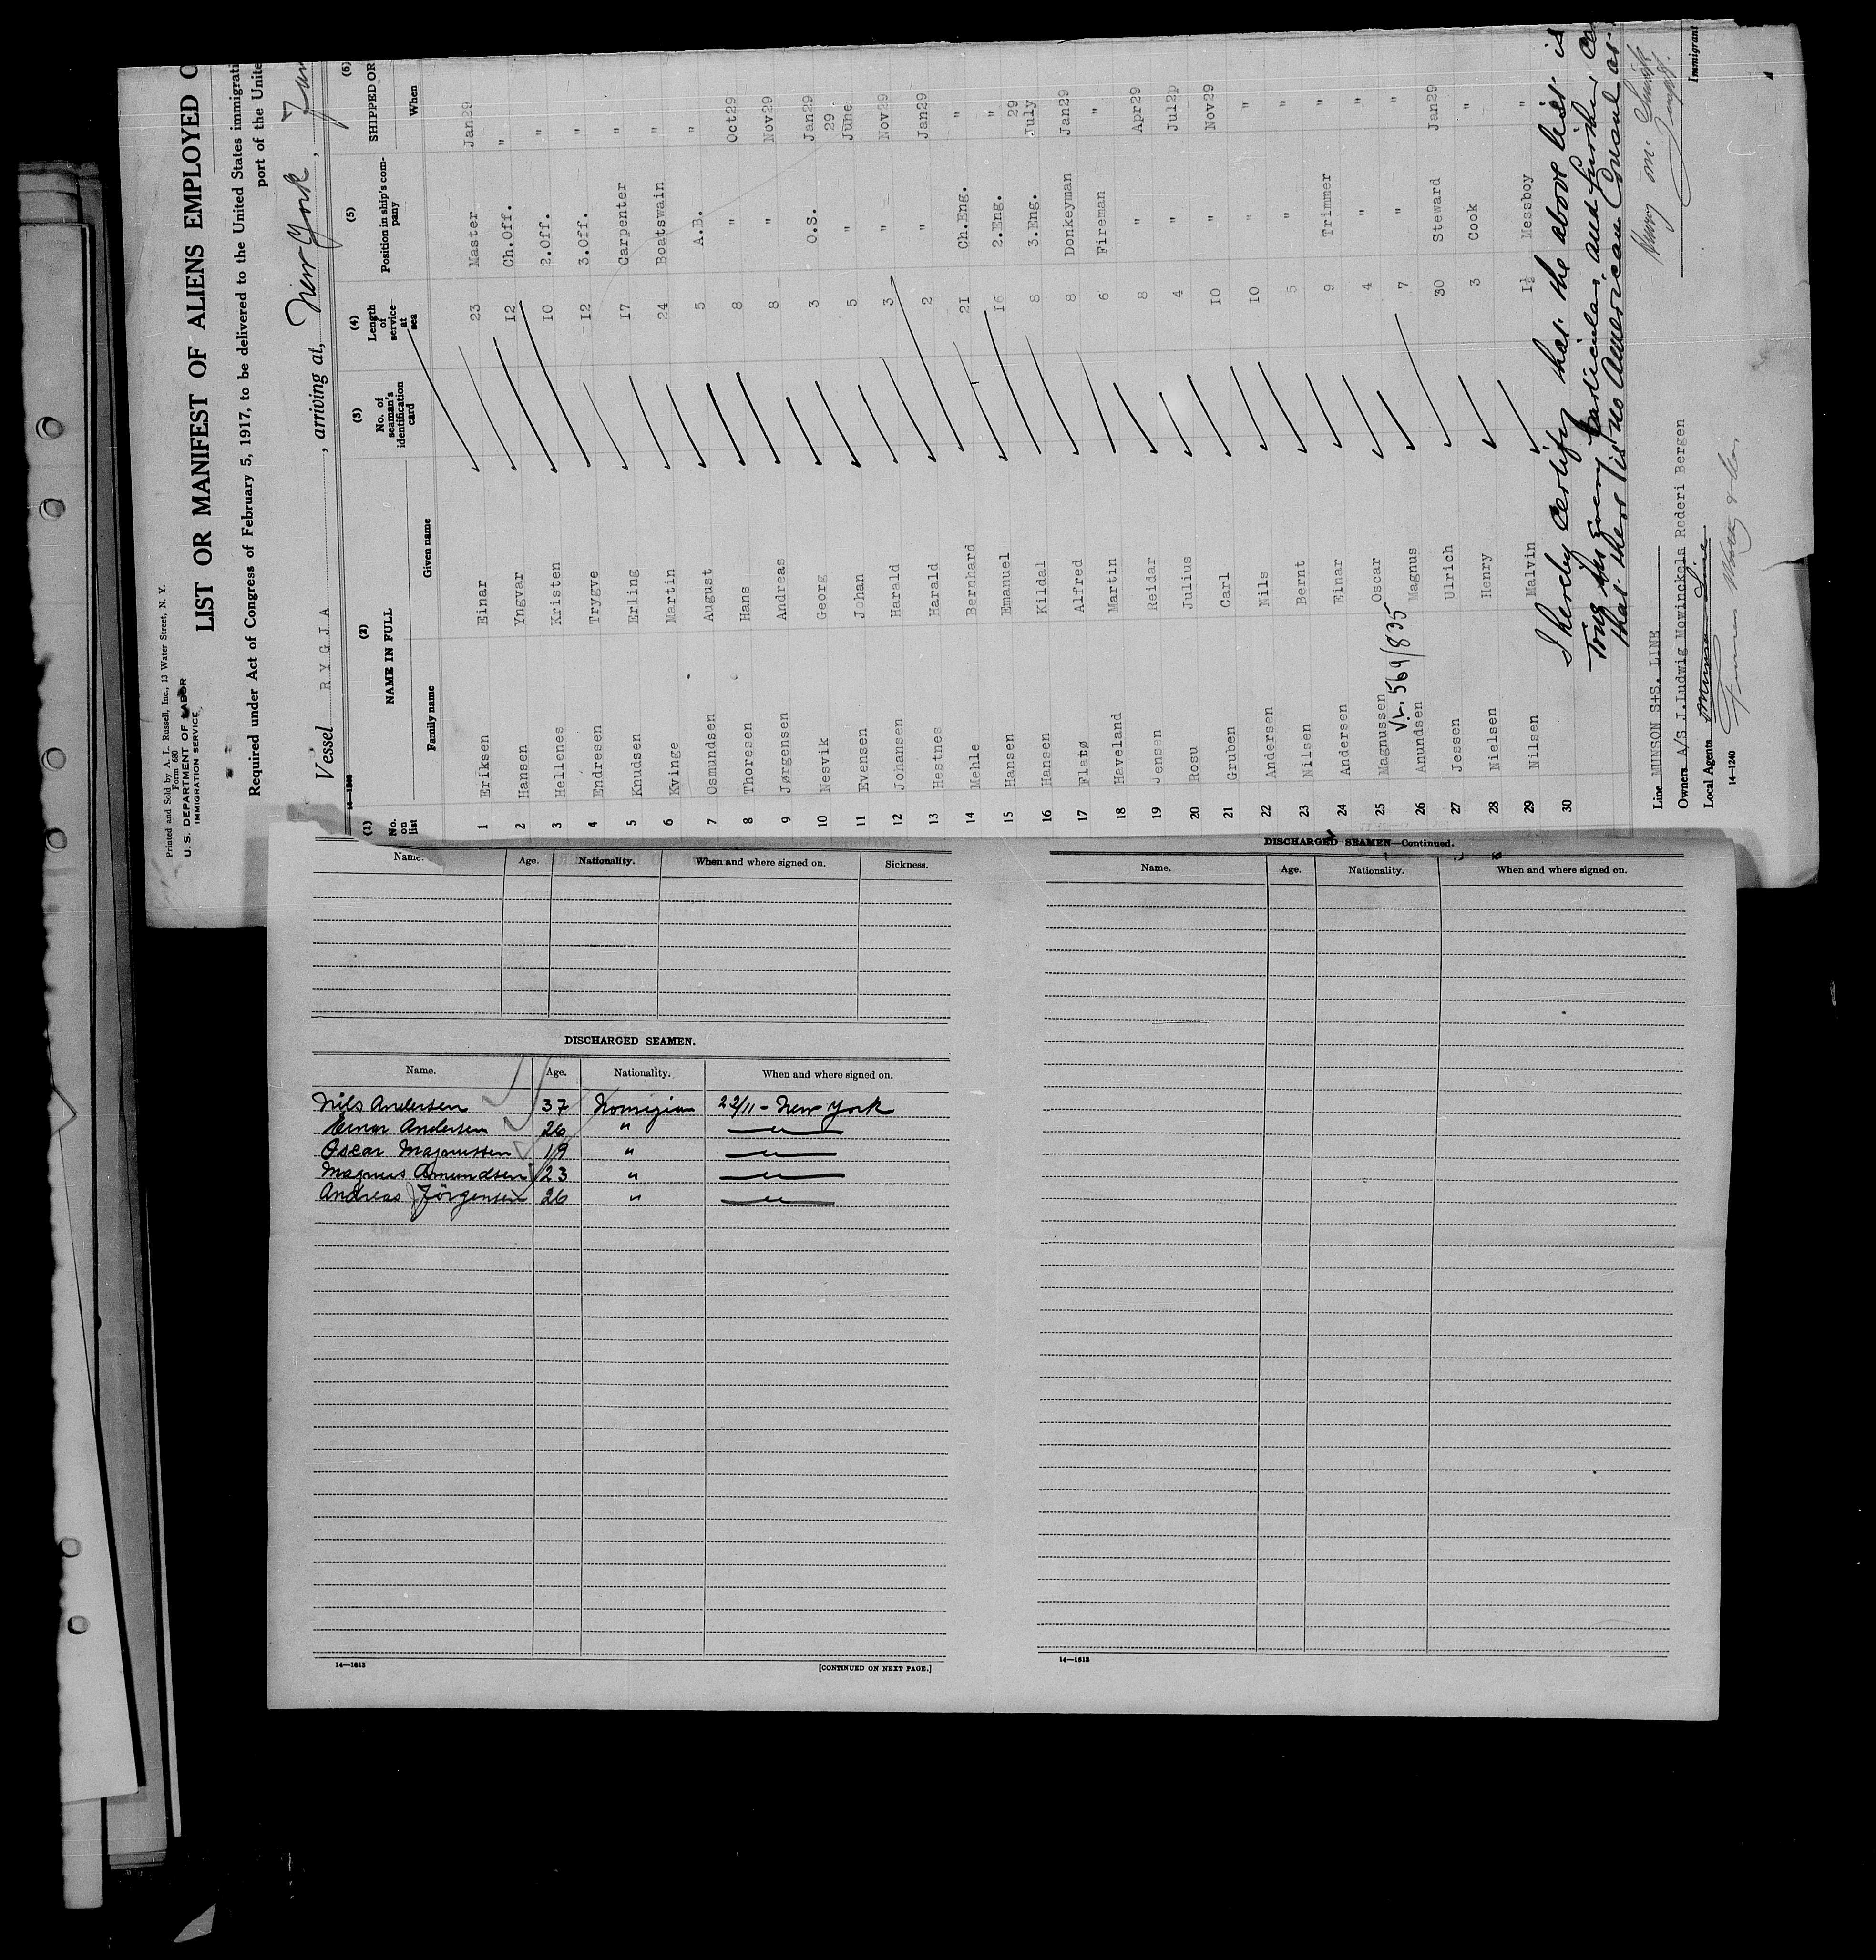 Printed and Sold by A. I. Russell, Inc., 13 Water Street, N. Y.
Form 680
U. S. DEPARTMENT OF LABOR
IMMIGRATION SERVICE
LIST OR MANIFEST OF ALIENS EMPLOYED
Required under Act of Congress of February 5, 1917, to be delivered to the United States immigrati
port of the Unite
Vessel R Y G J A, arriving at, New York,
(1) (2) (3) (4) (5) (6)
No. on list NAME IN FULL No. of seaman's identification card Length of service at sea Position in ship's company SHIPPED OR
Family name Given name When
1 Eriksen Einar 23 Master Jan29
2 Hansen Yngvar 12 Ch.Off. "
3 Hellenes Kristen 10 2.Off. "
4 Endresen Trygve 12 3.Off. "
5 Knudsen Erling 17 Carpenter "
6 Kvinge Martin 24 Boatswain "
7 Osmundsen August 5 A.B. "
8 Thoresen Hans 8 " Oct29
9 Jørgensen Andreas 8 " Nov29
10 Nesvik Georg 3 O.S. Jan29
11 Evensen Johan 5 " 29 June
12 Johansen Harald 3 " Nov29
13 Hestnes Harald 2 " Jan29
14 Mehle Bernhard 21 Ch.Eng. "
15 Hansen Emanuel 16 2.Eng. "
16 Hansen Kildal 8 3.Eng. 29 July
17 Flatø Alfred 8 Donkeyman Jan29
18 Haveland Martin 6 Fireman "
19 Jensen Reidar 8 " Apr29
20 Rosu Julius 4 " Jul2p
21 Gruben Carl 10 " Nov29
22 Andersen Nils 10 " "
23 Nilsen Bernt 5 " "
24 Andersen Einar 9 Trimmer "
25 Magnussen Oscar 4 " "
V.L. 569/835
26 Amundsen Magnus 7 " "
27 Jessen Ulrich 30 Steward Jan29
28 Nielsen Henry 3 Cook "
29 Nilsen Malvin 1½ Messboy "
30
I hereby certify that the above list is
true in every particular, and further
that there is no American Consul at
Line MUNSON S+S. LINE
Owners A/S J.Ludwig Mowinckels Rederi Bergen
Local Agents Munson Line
14—1240
Immigrant
Name. Age. Nationality. When and where signed on. Sickness.
DISCHARGED SEAMEN.
Name. Age. Nationality. When and where signed on.
Nils Andersen 37 Norwegian 22/11 - New York
Einar Andersen 26 " "
Oscar Magnussen 19 " "
Magnus Amundsen 23 " "
Andreas Jörgensen 26 " "
14—1613
[CONTINUED ON NEXT PAGE.]
DISCHARGED SEAMEN—Continued.
Name. Age. Nationality. When and where signed on.
14—1613